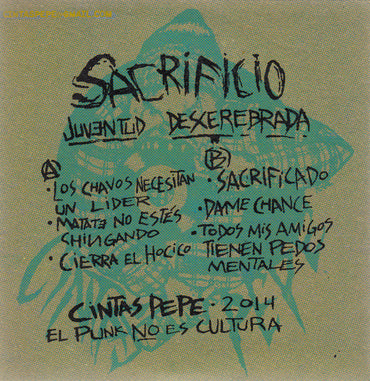 SACRIFICIO
JUVENTUD DESCEREBRADA
A
• LOS CHAVOS NECESITAN
UN LIDER
• MATATE NO ESTÉS
CHINGANDO
• CIERRA EL HOCICO
B
• SACRIFICADO
• DAME CHANCE
• TODOS MIS AMIGOS
TIENEN PEDOS
MENTALES
CINTAS PEPE • 2014
EL PUNK NO ES CULTURA